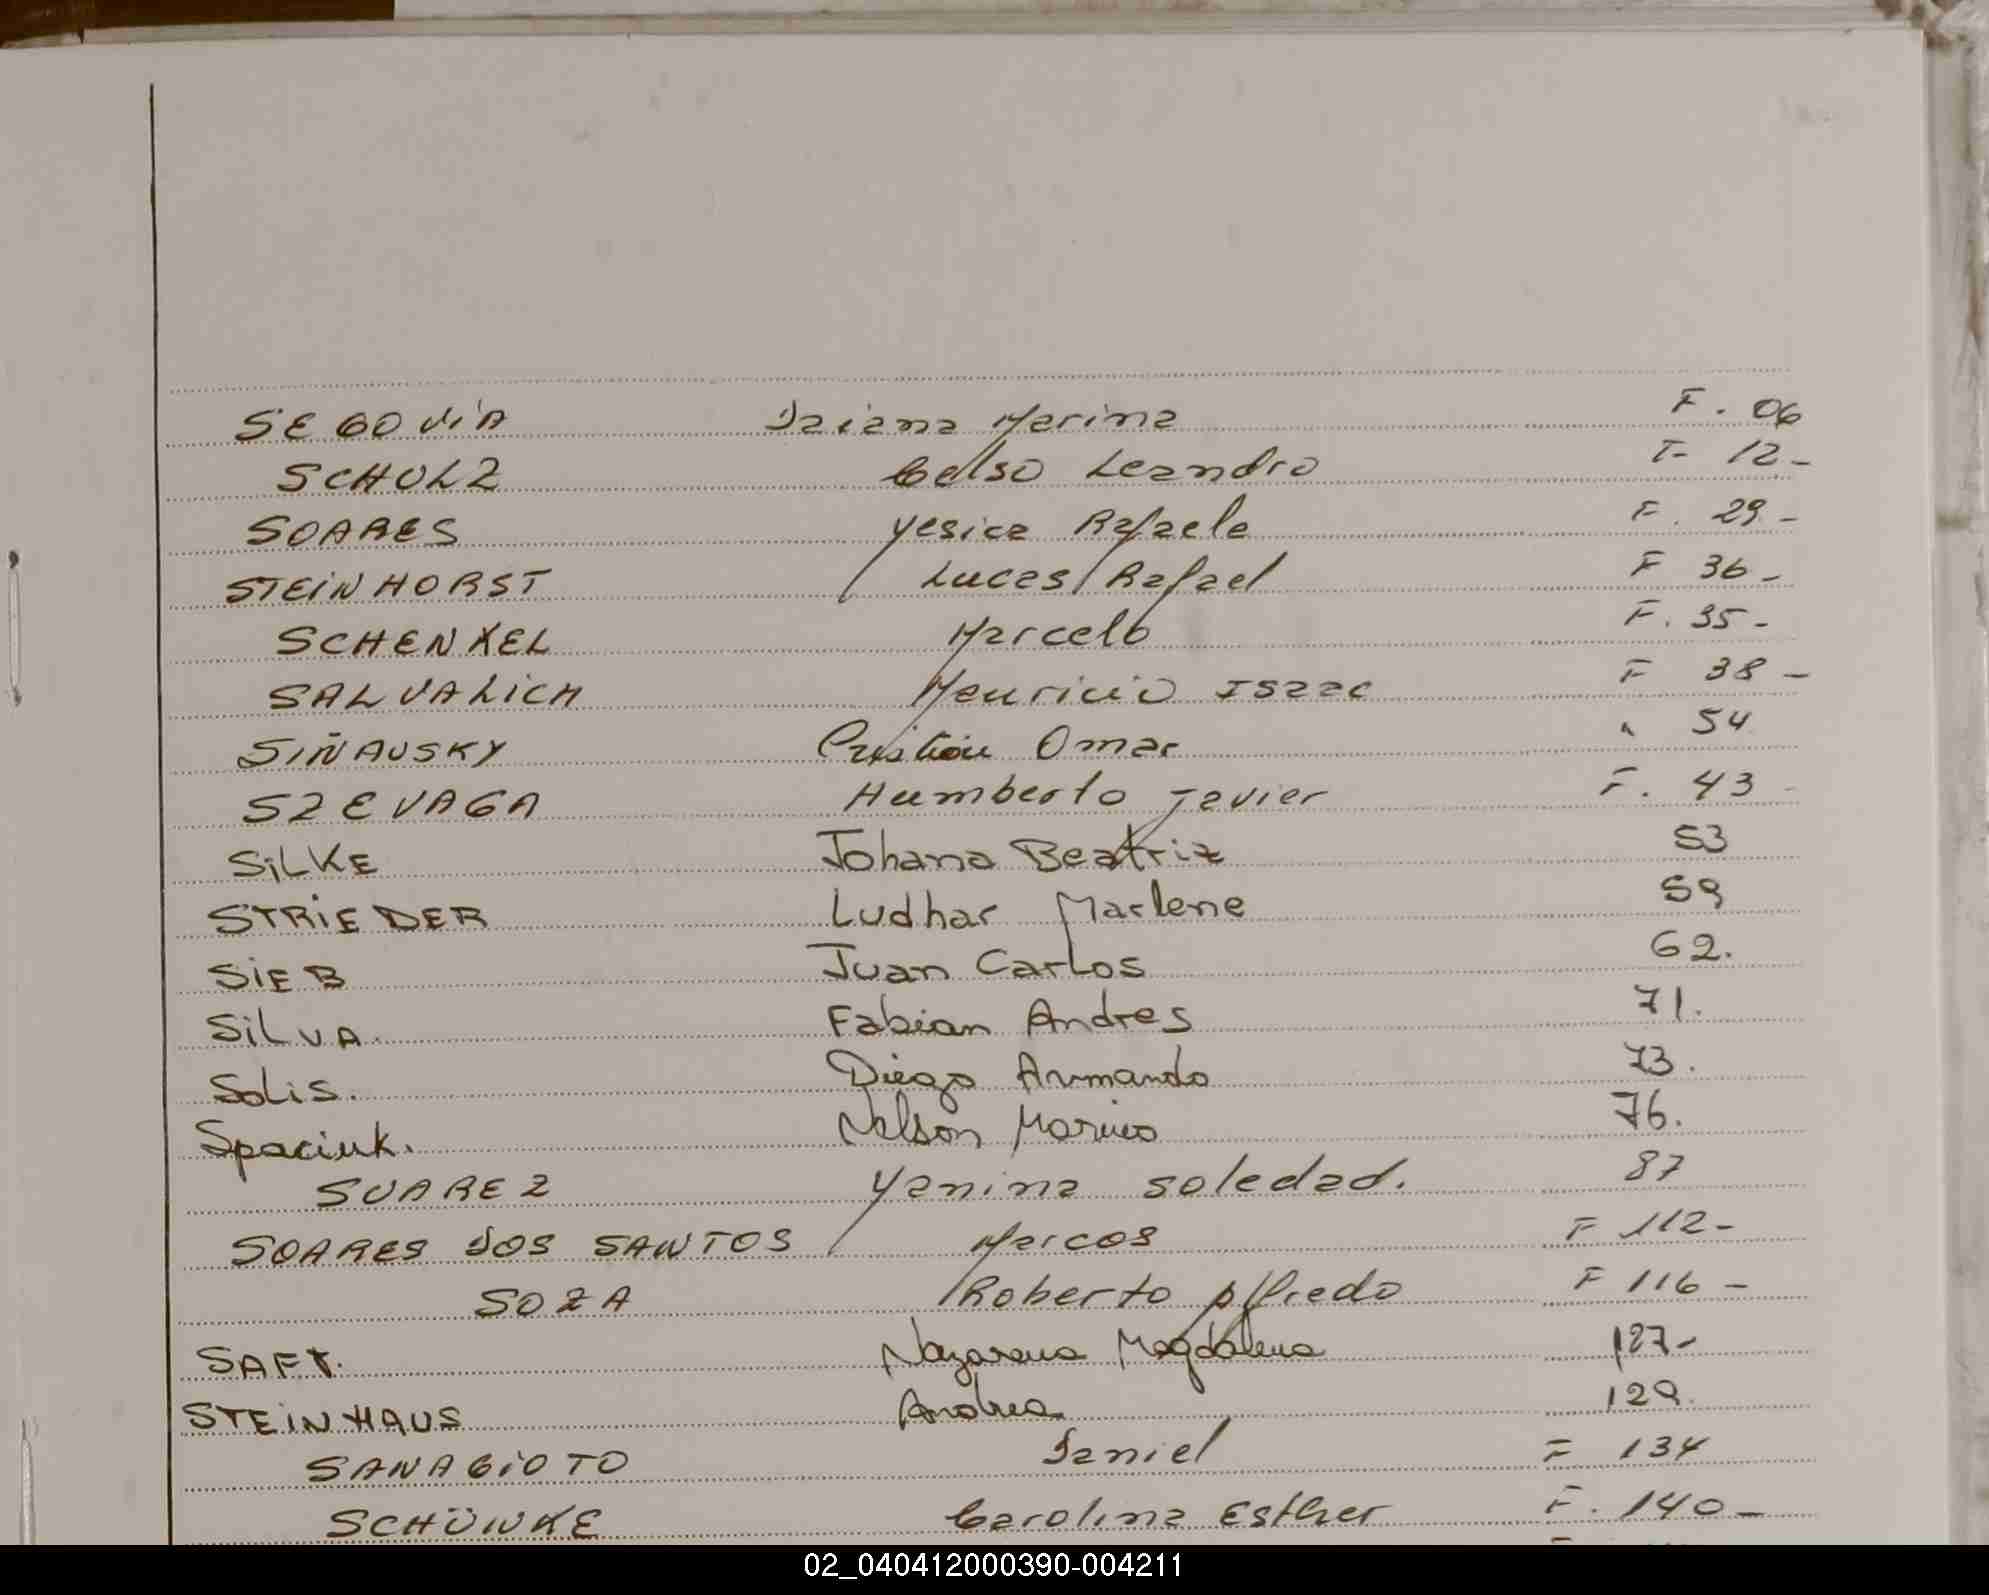 SEGOVIA Daiana Marina F. 06
SCHOLZ Celso Leandro F 12-
SOARES Yesica Rafaela F. 29-
STEINHORST Lucas Rafael F 36-
SCHENKEL Marcelo F. 35-
SALVALICH Mauricio Isaac F 38-
SIÑAUSKY Cristian Omar " 54
SZEVAGA Humberto Javier F. 43-
SILKE Johana Beatriz 53
STRIEDER Ludhar Marlene 59
SIEB Juan Carlos 62.
SILVA. Fabian Andres 71.
Solis. Diego Armando 73.
Spaciuk. Nelson 76.
SUAREZ Yanina Soledad. 87
SOARES DOS SANTOS Marcos F 112-
SOZA Roberto Alfredo F 116-
SAFT. Nazarena Magdalena 127-
STEINHAUS Andrea 129.
SANAGIOTO Daniel F 134
SCHÜNKE Carolina Esther F. 140-
02_040412000390-004211